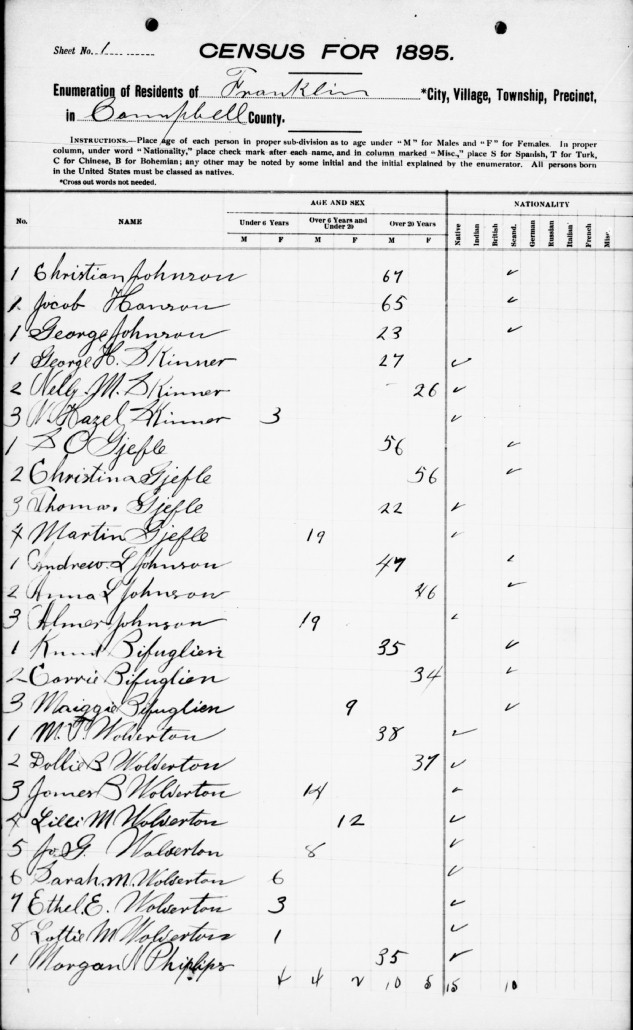 Sheet No. 1
CENSUS FOR 1895.
Enumeration of Residents of Franklin *City, Village, Township, Precinct,
in Campbell County.
INSTRUCTIONS.—Place age of each person in proper sub-division as to age under "M" for Males and "F" for Females. In proper
column, under word "Nationality," place check mark after each name, and in column marked "Misc.," place S for Spanish, T for Turk,
C for Chinese, B for Bohemian; any other may be noted by some initial and the initial explained by the enumerator. All persons born
in the United States must be classed as natives.
*Cross out words not needed.
AGE AND SEX NATIONALITY
No. NAME Under 6 Years Over 6 Years and Under 20 Over 20 Years Native Indian British Scand. German Russian Italian French Misc.
M F M F M F
1 Christian Johnson 67 ✓
1 Jacob Hanson 65 ✓
1 George Johnson 23 ✓
1 George H. Skinner 27 ✓
2 Nelly M. Skinner 26 ✓
3 N. Hazel Skinner 3 ✓
1 S C Gjefle 56 ✓
2 Christina Gjefle 56 ✓
3 Thomas Gjefle 22 ✓
4 Martin Gjefle 19 ✓
1 Andrew L Johnson 47 ✓
2 Anna L Johnson 46 ✓
3 Almer Johnson 19 ✓
1 Knud Bifuglien 35 ✓
2 Carrie Bifuglien 34 ✓
3 Maiggie Bifuglien 9 ✓
1 M. T. Wolverton 38 ✓
2 Dollie B Wolverton 37 ✓
3 James B Wolverton 14 ✓
4 Lilli M Wolverton 12 ✓
5 Jo G. Wolverton 8 ✓
6 Sarah M. Wolverton 6 ✓
7 Ethel E. Wolverton 3 ✓
8 Lottie M Wolverton 1 ✓
1 Morgan N Phiplips 35 ✓
4 4 2 10 5 15 10